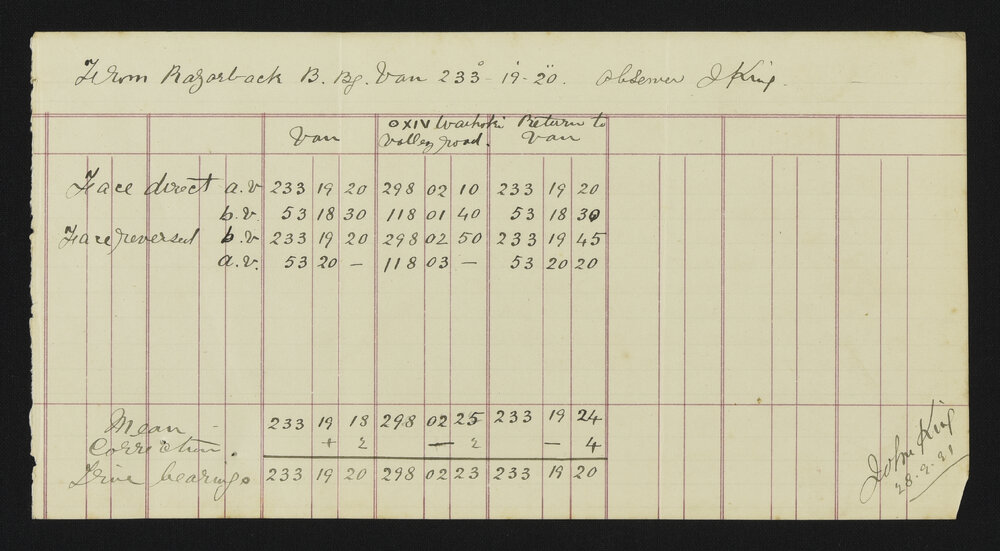 From Razorback B. Bg. Van 233° - 19' - 20". Observer J King.
Van O XIV Waihoki Valley road. Return to Van
Face direct a.v 233 19 20 298 02 10 233 19 20
b.v. 53 18 30 118 01 40 53 18 30
Face reversed b.v 233 19 20 298 02 50 233 19 45
a.v. 53 20 — 118 03 — 53 20 20
Mean 233 19 18 298 02 25 233 19 24
Correction. + 2 — 2 — 4
True bearings 233 19 20 298 02 23 233 19 20
John King
28.9.21